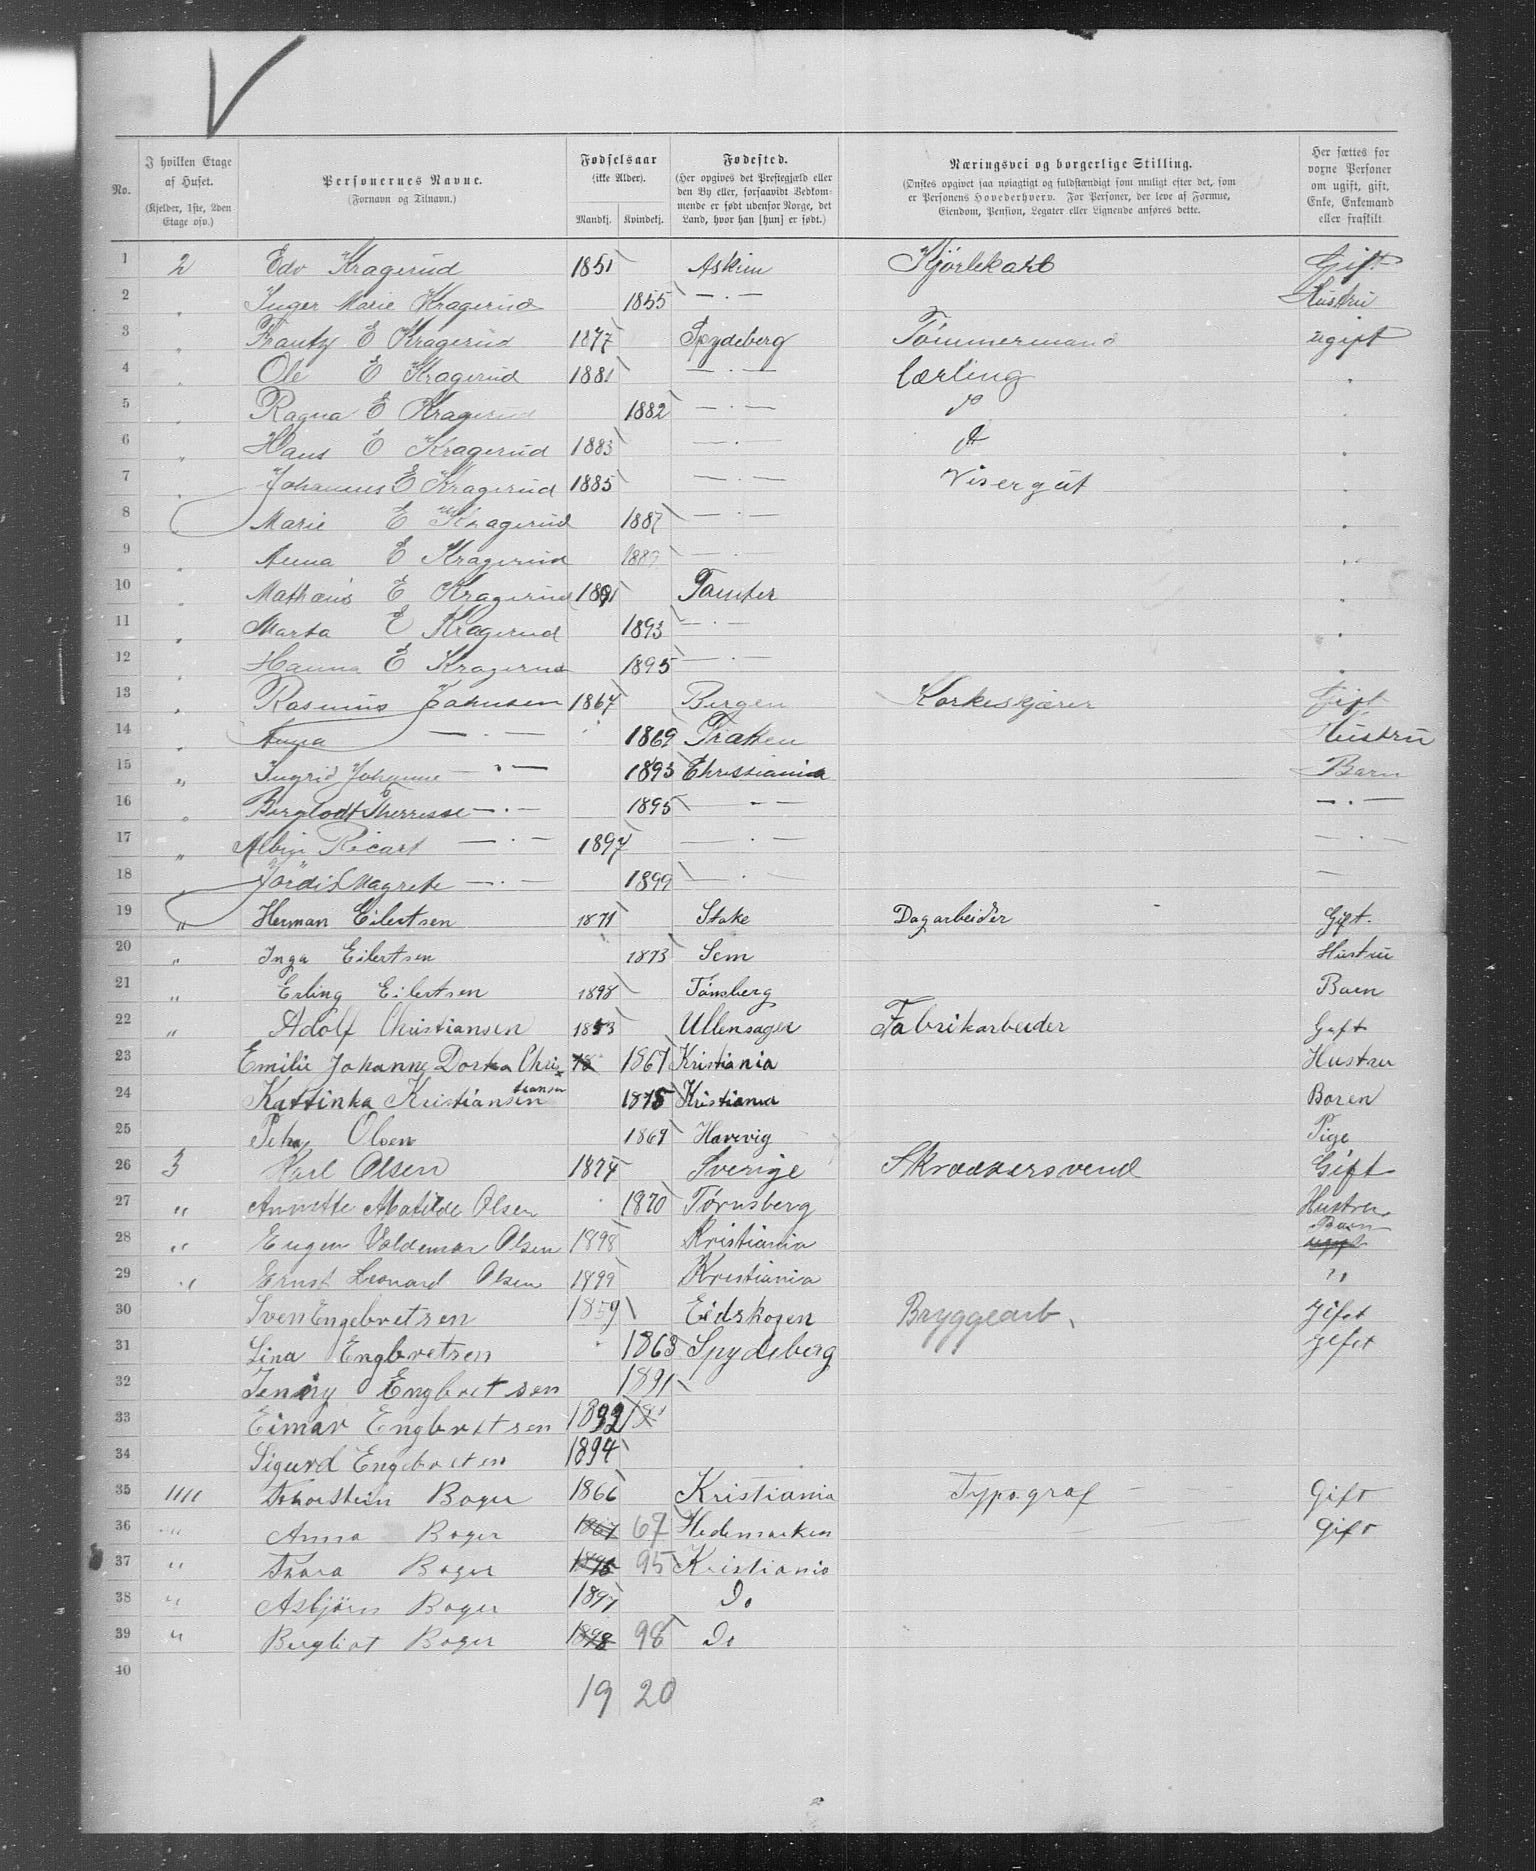 No.
I hvilken Etage af Huset. (Kjelder, 1ste, 2den Etage osv.)
Personernes Navne. (Fornavn og Tilnavn.)
Fødselsaar (ikke Alder). Mandkj. Kvindekj.
Fødested. (Her opgives det Prestegjæld eller den By eller, forsaavidt Vedkommende er født udenfor Norge, det Land, hvor han [hun] er født.)
Næringsvei og borgerlige Stilling. (Ønskes opgivet saa nøiagtigt og fuldstændigt som muligt efter det, som er Personens Hovederhverv. For Personer, der leve af Formue, Eiendom, Pension, Legater eller Lignende anføres dette.
Her sættes for voxne Personer om ugift, gift, Enke, Enkemand eller fraskilt.
1 2 Edv Kragerud 1851 Askim Gift
2 " Inger Marie Kragerud 1855 — . — Hustru
3 " Frantz E Kragerud 1877 Spydeberg Tømmermand ugift
4 " Ole E Kragerud 1881 — . — Lærling "
5 " Ragna E Kragerud 1882 — . — do "
6 " Hans E Kragerud 1883 — . — do "
7 " Johannes E Kragerud 1885 — . — Visergut "
8 " Marie E Kragerud 1887 — . — "
9 " Anna E Kragerud 1889 — . — "
10 " Mathæus E Kragerud 1891 Tomter "
11 " Marta E Kragerud 1893 — . — "
12 " Hanna E Kragerud 1895 — . — "
13 " Rasmus Johnsen 1867 Bergen Korkeskjærer Gift
14 " Anna — . — 1869 Hustru
15 " Ingrid Johanne — . — 1893 Christiania Barn
16 " Bergliodt Therresse — . — 1895 — — — . —
17 " Albin Ricart — . — 1897 — . — — . —
18 " Jördis Magrete — . — 1899 — . — —
19 " Herman Eilertsen 1871 Stoke Dagarbeider Gift.
20 " Inga Eilertsen 1873 Sem Hustru
21 " Erling Eilertsen 1898 Tønsberg Barn
22 " Adolf Christiansen 1853 Ullensager Fabrikarbeider Gift
23 Emilie Johanne Dortea Christiansen 18 1861 Kristiania Hustru
24 Kattinka Kristiansen 1875 Kristiania Boren
25 Olsen 1869 Pige
26 3 Karl Olsen 1874 Sverige Skræddersvend Gift
27 " Annette Matilde Olsen 1870 Tørnsberg Hustru
28 " Eugen Valdemar Olsen 1898 Kristiania Barn ugift
29 " Ernst Leonard Olsen 1899 Kristiania "
30 Sven Engebretsen 1859 Eidskogen Bryggearb. Gift
31 Lina Engbretsen 1863 Spydeberg Gift
32 Jenny Engbretsen 1891
33 Eimar Engbretsen 1892
34 Sigurd Engebretsen 1894
35 1111 Thorstein Boger 1866 Kristiania Typograf Gift
36 " Anna Boger 1867 67 Hedemarken Gift
37 " Thora Boger 1895 95 Kristiania
38 " Asbjørn Boger 1897 Do
39 " Bergliot Boger 1898 98 Do
40
19 20